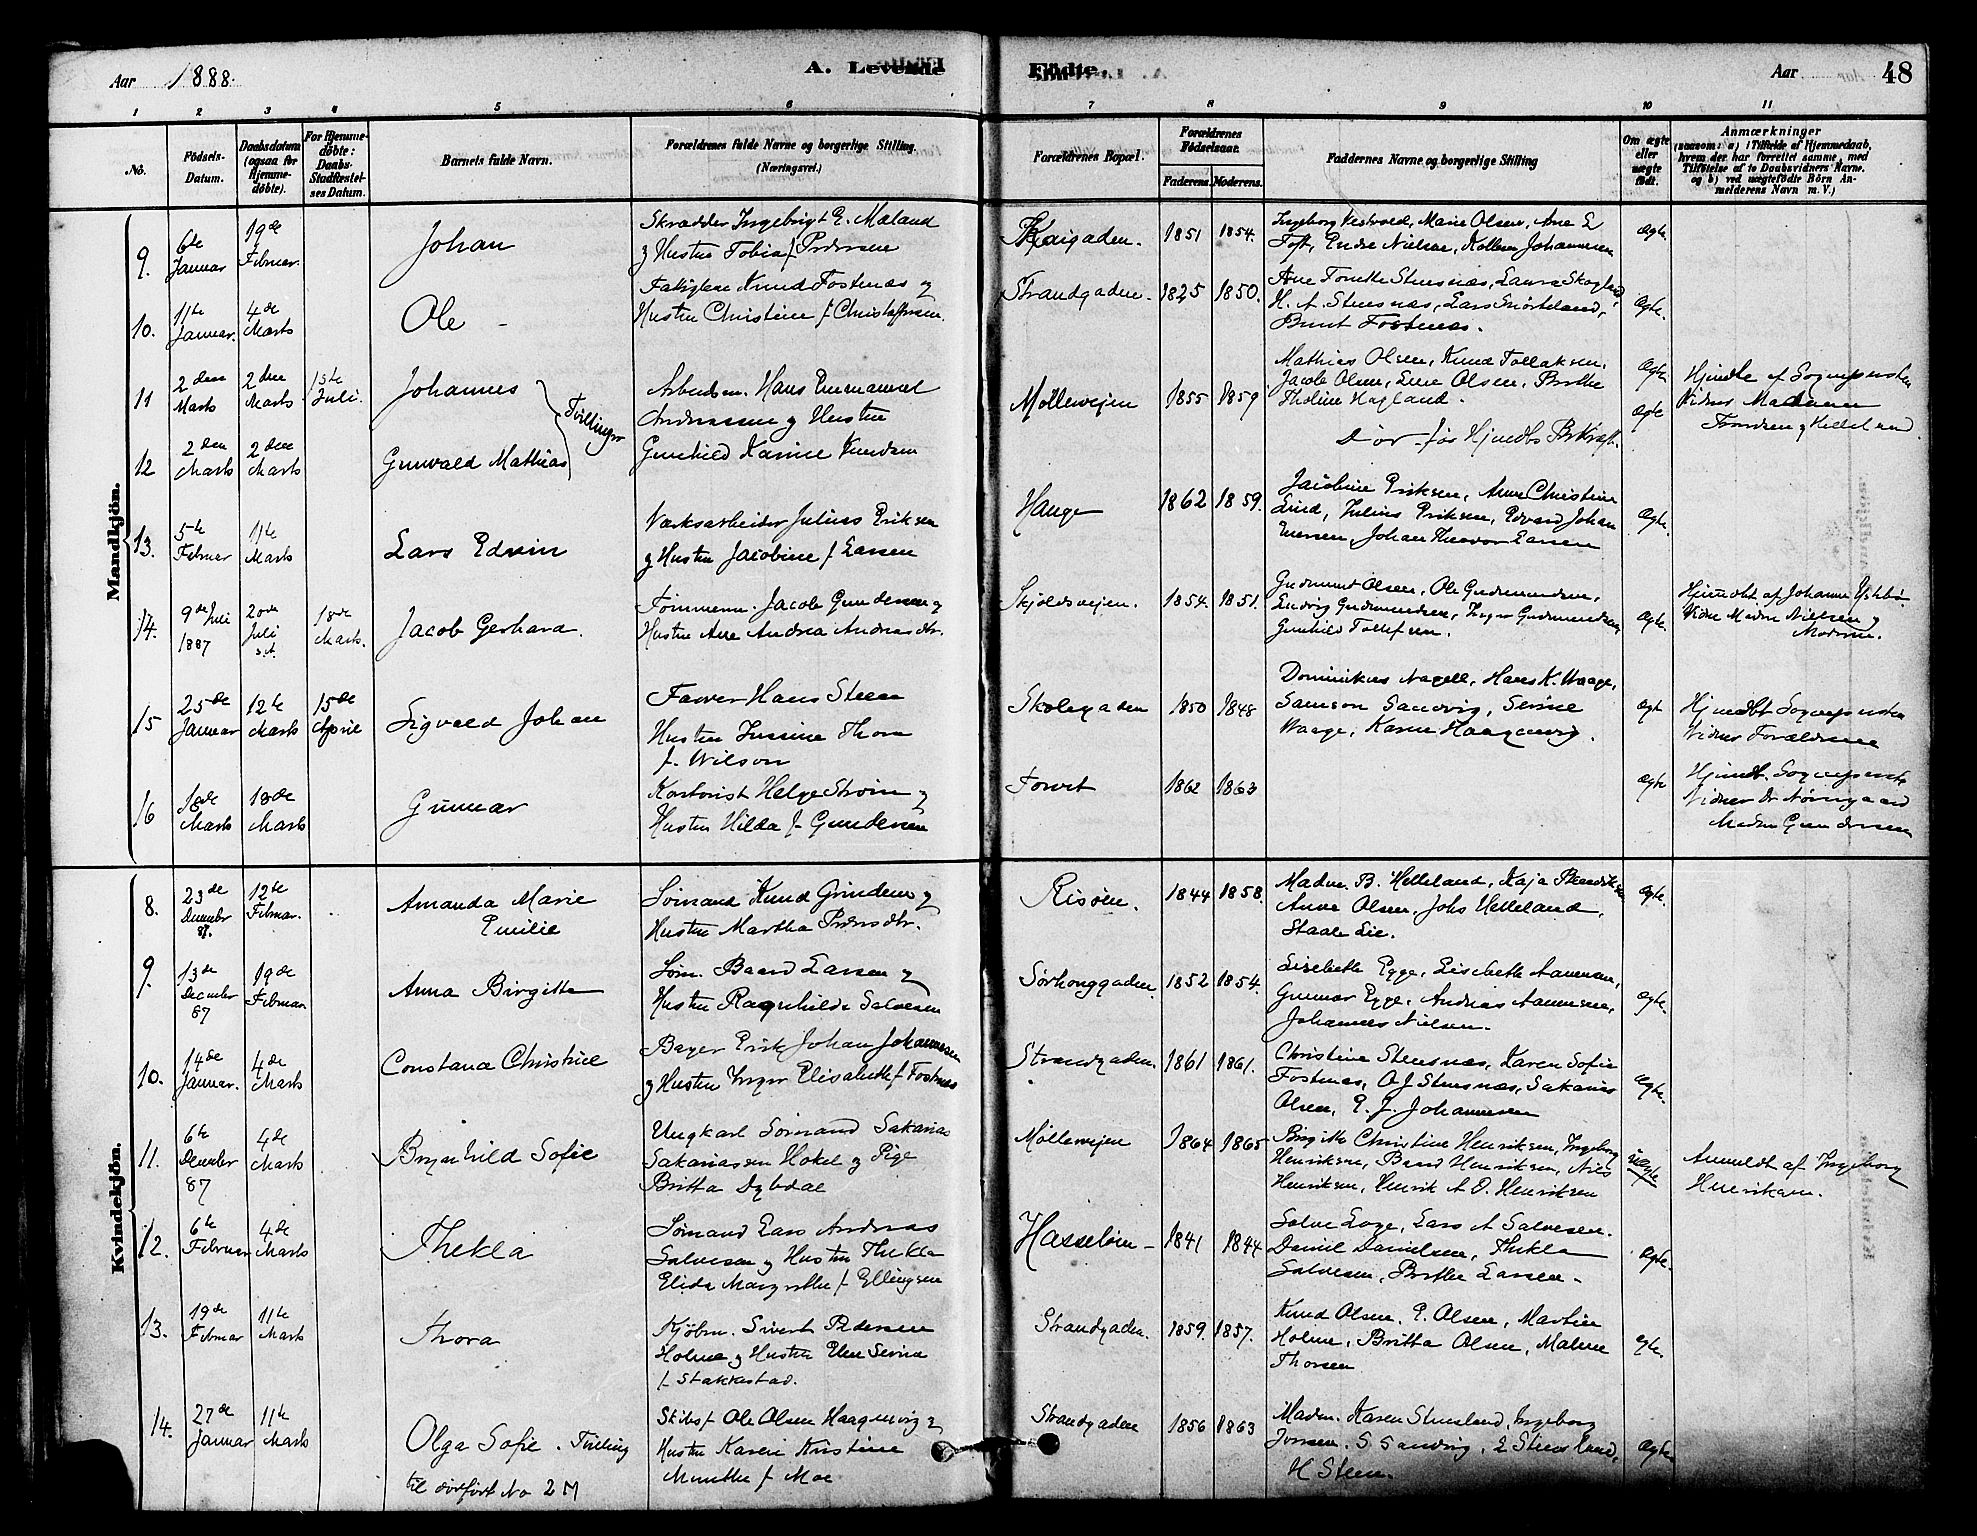 Aar 1888. A. Levende Födte. Aar 48
1 2 3 4 5 6 7 8 9 10 11
No.
Födsels-Datum.
Daabsdatum (ogsaa for Hjemme-döbte).
For Hjemme-döbte: Daabs-Stadfæstel-ses Datum.
Barnets fulde Navn.
Forældrenes fulde Navne og borgerlige Stilling. (Næringsvei.)
Forældrenes Bopæl.
Forældrenes Födselsaar.
Faderens. Moderens.
Faddernes Navne og borgerlige Stilling
Om ægte eller uægte födt.
Anmærkninger
(saasom: a) i Tilfælde af Hjemmedaab, hvem der har forrettet samme, med Tilföielse af to Daabsvidners Navne. og b) ved uægtefödte Börn An-melderens Navn m. V.)
Mandkjön.
9. 6te Januar 19de Februar. Johan
Skrædder Ingebrigt E. Mæland
og Hustru Tobia f. Pedersen
Kaigaden. 1851 1854.
Ingeborg Vestvold, Marie Olsen, Ane E
Toft, Endre Nielsen, Johannesen
Ægte
10. 11te Januar. 4de Marts Ole
Knud Fostenæs og
Hustru Christine f. Christoffersen.
Strandgaden. 1825 1850.
Ane Stensnæs, Laura Skogland,
H. A. Stensnæs, Lars
Fostenæs.
Ægte.
11 2den Marts 2den Marts 1ste Juli. Johannes
Tvillinger
Arbeidsm. Hans Emmanuel
Andreassen og Hustru
Gunhild Karine Knudsen
Mølleveien 1855 1859
Mathias Olsen, Knud Tollaksen,
Jacob Olsen, Ene Olsen, Berthe
Tholine Hagland.
Ægte
Hjmdbt af Sognepresten
Vidner Madamm
12 2den Marts 2den Marts Gunvald Mathias
Døde før Hjmdbs Bekræft.
Ægte
13. 5te Februar 11te Marts Lars Edvin
Værksarbeider Julius Eriksen
og Hustru Jacobine f. Larsen
Hauge 1862 1859.
Jacobine Eriksen, Anne Christine
Lund, Julius Eriksen, Edvard Johan
Iversen, Johan Larsen
Ægte.
14. 9de Juli 1887 20de Juli s.A. 18de Marts. Jacob Gerhard.
Tømmerm. Jacob Gundersen og
Hustru Ane Andrea Andreasdtr.
Skjoldsveien. 1854. 1851.
Gudmund Olsen, Ole Gudmundsen,
Ludvig Gudmundsen, Inger Gudmundsen,
Gunhild Tollefsen.
Ægte.
Hjmdbt af Johanne
Vidne Madm Nielsen og
Moderen.
15 25de Januar 12te Marts 15de April Sigvald Johan
Farver Hans Steen
Hustru Jensine Thora
f. Wilson
Skolegaden 1850 1848
Dominikus Nagell, Hans K. Waage,
Samson Sandvig, Serine
Waage, Karen Haaguevig.
Ægte
Hjmdbt Sognepresten
Vidner Forældrene
16 18de Marts 18de Marts Gunnar
Kontorist Helge Strøm og
Hustru Hilda f. Gundersen
Torvet 1862 1863
Ægte
Hjmdbt. Sognepresten
Vidner Dr Nørregaard
Madm Gundersen
Kvindekjön.
8. 23de December 87. 12te Februar. Amanda Marie
Emilie
Sømand Knud Grindem og
Hustru Martha Pedersdtr.
Risøen. 1844 1858.
Madm. B. Helleland, Kaja
Anne Olsen, Johs Helleland,
Staale Lie.
Ægte.
9. 13de December 87 19de Februar. Anna Birgitte
Søm. Baard Larsen og
Hustru Ragnhilde Salvesen
Sørhauggaden. 1852 1854.
Lisebeth Egge, Lisebeth Aanensen,
Gunnar Egge, Andreas Aanensen,
Johannes Nielsen.
Ægte.
10. 14de Januar. 4de Marts Constana Christine
Bager Erik Johan Johannesen
og Hustru Inger Elisabeth f. Fostnæs
Strandgaden. 1861 1861.
Christine Stensnæs, Karen Sofie
Fostenæs, O J Stensnæs, Sakarias
Olsen, E. J. Johannesen
Ægte.
11. 6te December 87 4de Marts Brynhild Sofie
Ungkarl Sømand Sakarias
Sakariassen Hokel og Pige
Britta Dybdal
Møllevejen 1864 1865
Birgitte Christine Henriksen, Ingeborg
Henriksen, Baard Henriksen, Nils
Henriksen, Henrik A. O. Henriksen
Uægte
Anmeldt af Ingeborg
Henriksen.
12. 6te Februar 4de Marts Thekla
Sømand Lars Andreas
Salvesen og Hustru Thekla
Elida Margrethe f. Ellingsen
Hasseløen 1841 1844
Salve Loge, Lars A Salvesen.
Daniel Danielsen, Thekla
Salvesen, Berthe Larsen
Ægte.
13. 19de Februar 11te Marts Thora
Kjøbm. Sivert Pedersen
Holme og Hustru Elen Serina
f. Stakkestad.
Strandgaden. 1859. 1857.
Knud Olsen, E. Olsen, Martin
Holme, Britta Olsen, Malene
Thorsen
Ægte.
14. 27de Januar 11te Marts Olga Sofie. Tvilling
til dødfødt No 2 M
Skibsf. Ole Olsen Haaguevig og
Hustru Karen Kristine
Munthe f. Moe
Strandgaden 1856 1863
Madm. Karen Stensland, Ingeborg
Jonsen. S Sandvig, L Stensland,
H Steen.
Ægte.